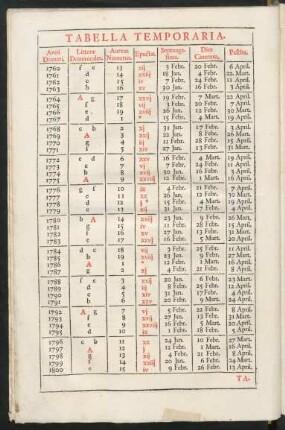 TABELLA TEMPORARIA.
Anni Domini. Litteræ Dominicales. Aureus Numerus. Epactæ. Septuagesima. Dies Cinerum. Pascha.
1760 f e 13 xij 3 Febr. 20 Febr. 6 April.
1761 d 14 xxiij 18 Jan. 4 Febr. 22 Mart.
1762 c 15 iv 7 Febr. 24 Febr. 11 April.
1763 b 16 xv 30 Jan. 16 Febr. 3 April.
1764 A g 17 xxvj 19 Febr. 7 Mart. 22 April.
1765 f 18 vij 3 Febr. 20 Febr. 7 April.
1766 e 19 xviij 26 Jan. 12 Febr. 30 Mart.
1767 d 1 * 15 Febr. 4 Mart. 19 April.
1768 c b 2 xj 31 Jan. 17 Febr. 3 April.
1769 A 3 xxij 22 Jan. 8 Febr. 26 Mart.
1770 g 4 iij 11 Febr. 28 Febr. 15 April.
1771 f 5 xiv 27 Jan. 13 Febr. 31 Mart.
1772 e d 6 xxv 16 Febr. 4 Mart. 19 April.
1773 c 7 vj 7 Febr. 24 Febr. 11 April.
1774 b 8 xvij 30 Jan. 16 Febr. 3 April.
1775 A 9 xxviij 12 Febr. 1 Mart. 16 April.
1776 g f 10 ix 4 Febr. 21 Febr. 7 April.
1777 e 11 xx 26 Jan. 12 Febr. 30 Mart.
1778 d 12 j 15 Febr. 4 Mart. 19 April.
1779 c 13 xij 31 Jan. 17 Febr. 4 April.
1780 b A 14 xxiij 23 Jan. 9 Febr. 26 Mart.
1781 g 15 iv 11 Febr. 28 Febr. 15 April.
1782 f 16 xv 27 Jan. 13 Febr. 31 Mart.
1783 e 17 xxvj 16 Febr. 5 Mart. 20 April.
1784 d c 18 vij 8 Febr. 25 Febr. 11 April.
1785 b 19 xviij 23 Jan. 9 Febr. 27 Mart.
1786 A 1 * 12 Febr. 1 Mart. 16 April.
1787 g 2 xj 4 Febr. 21 Febr. 8 April.
1788 f e 3 xxij 20 Jan. 6 Febr. 23 Mart.
1789 d 4 iij 8 Febr. 25 Febr. 12 April.
1790 c 5 xiv 31 Jan. 17 Febr. 4 April.
1791 b 6 xxv 20 Febr. 9 Mart. 24 April.
1792 A g 7 vj 5 Febr. 22 Febr. 8 April.
1793 f 8 xvij 27 Jan. 13 Febr. 31 Mart.
1794 e 9 xxviij 16 Febr. 5 Mart. 20 April.
1795 d 10 ix 1 Febr. 18 Febr. 5 April.
1796 c b 11 xx 24 Jan. 10 Febr. 27 Mart.
1797 A 12 j 12 Febr. 1 Mart. 16 April.
1798 g 13 xij 4 Febr. 21 Febr. 8 April.
1799 f 14 xxiij 20 Jan. 6 Febr. 24 Mart.
1800 e 15 iv 9 Febr. 26 Febr. 13 April.
TA-